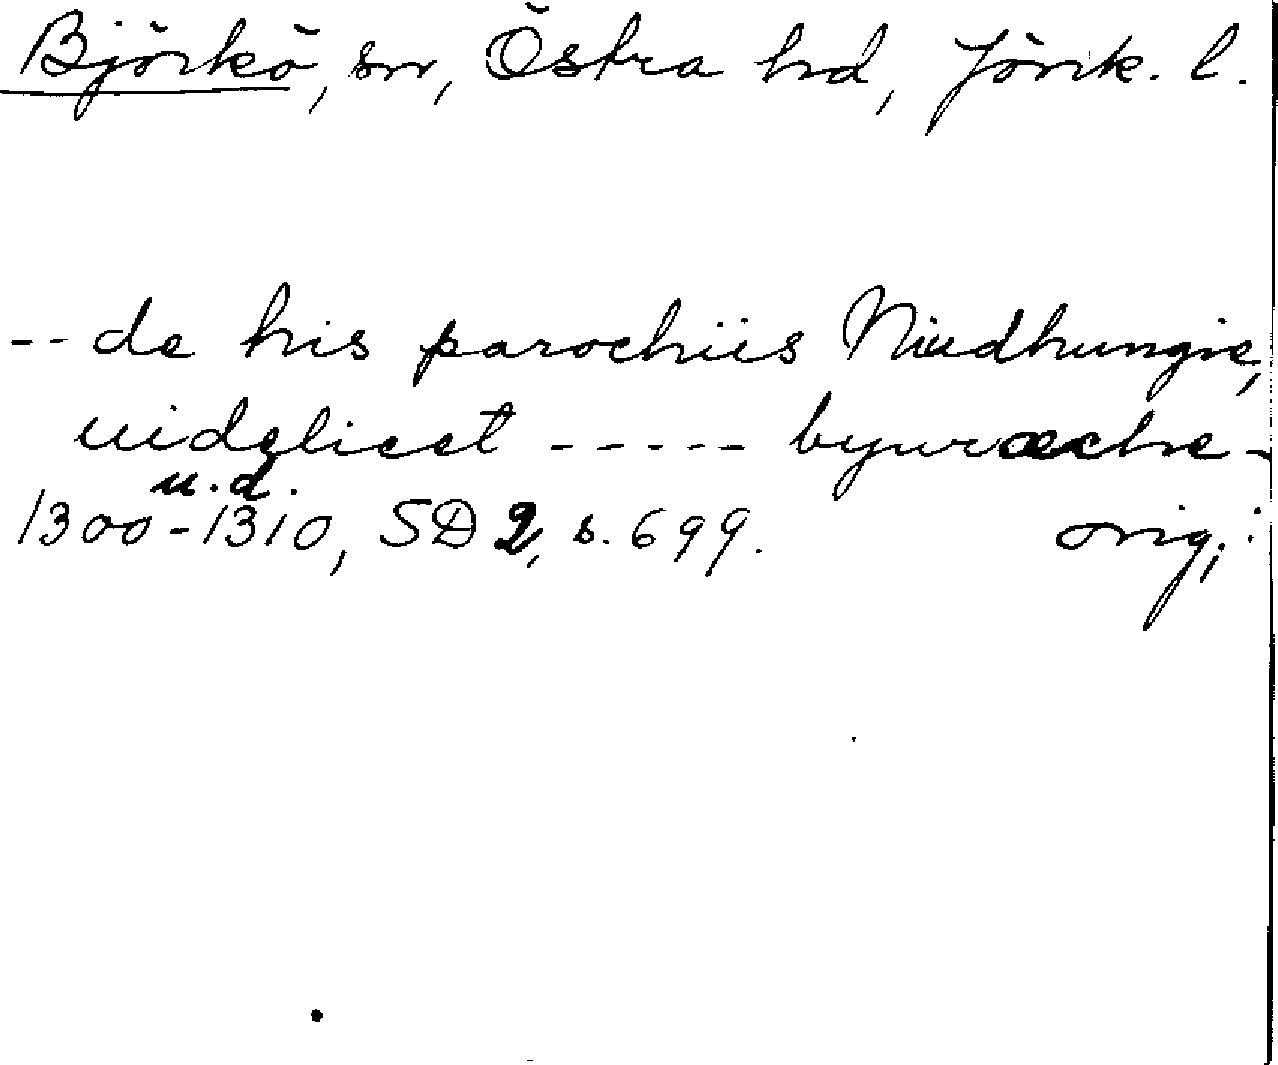 Björkö, sn, Östra hd, Jönk. l.
-- de his parochiis Niudhungie,
uidelicet ----- byuræche -
u.d.
1300-1310, SD 2, s. 699. orig.;